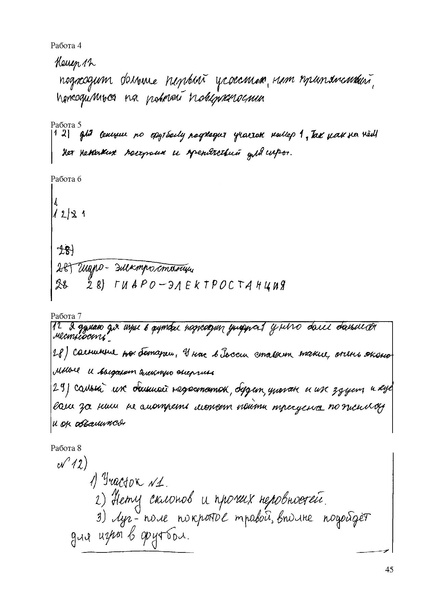 Работа 4
Номер 12
подходит больше первый участок, нет препятствий,
находиться на ровной поверхности
Работа 5
12) для секции по футболу подходит участок номер 1, так как на нём
нет никаких построек и препятствий для игры.
Работа 6
1
12) 1
28)
28) Гидро-электростанции
28 28) ГИДРО-ЭЛЕКТРОСТАНЦИЯ
Работа 7
12 Я думаю для игры в футбол подходит 1 у него боле большая
местность.
28) солнечные батареи, У нас в России ставят такие, очень эконо
мные и выдают электро энергию
29) самый их большой недостаток, будет, и их здует и
если за ним не смотреть может пойти трещена по
и он обвалится
Работа 8
№ 12)
1) Участок №1.
2) Нету склонов и прочих неровностей.
3) Луг-поле покрытое травой, вполне подойдёт
для игры в футбол.
45